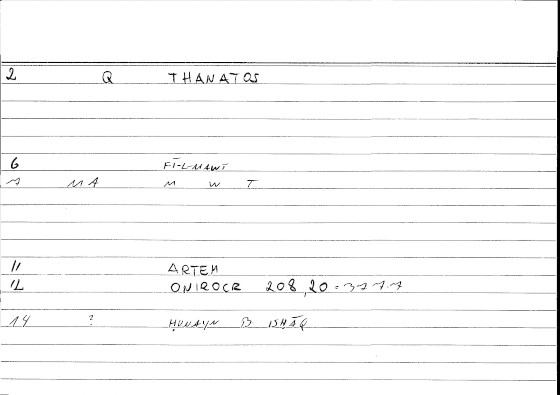 2 Q THANATOS
6 FĪ-L-MAWT
7 MA M W T
11 ARTEM
12 ONIROCR 208,20 = 377,7
14 ? ḤUNAYN B ISḤĀQ